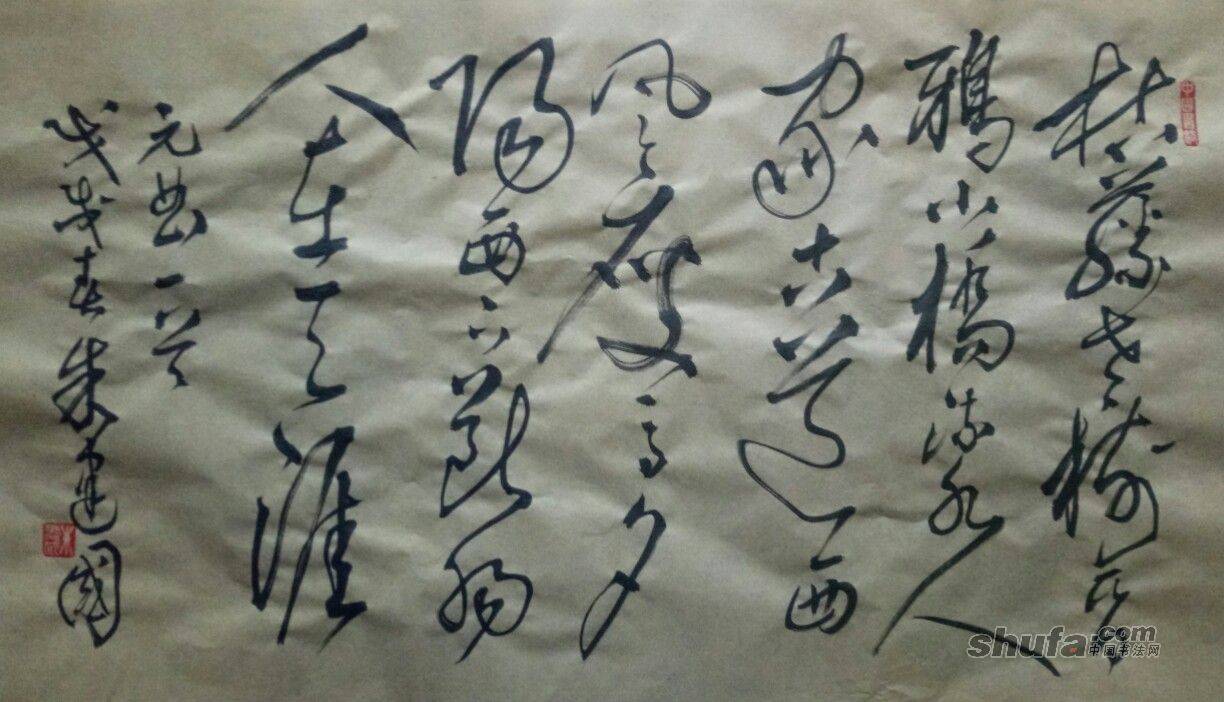 枯藤老樹昏
鴉小橋流水人
家古道西
風瘦馬夕
陽西下斷腸
人在天涯
元曲一首
戊戌春朱建國
shufa.com
中国书法网